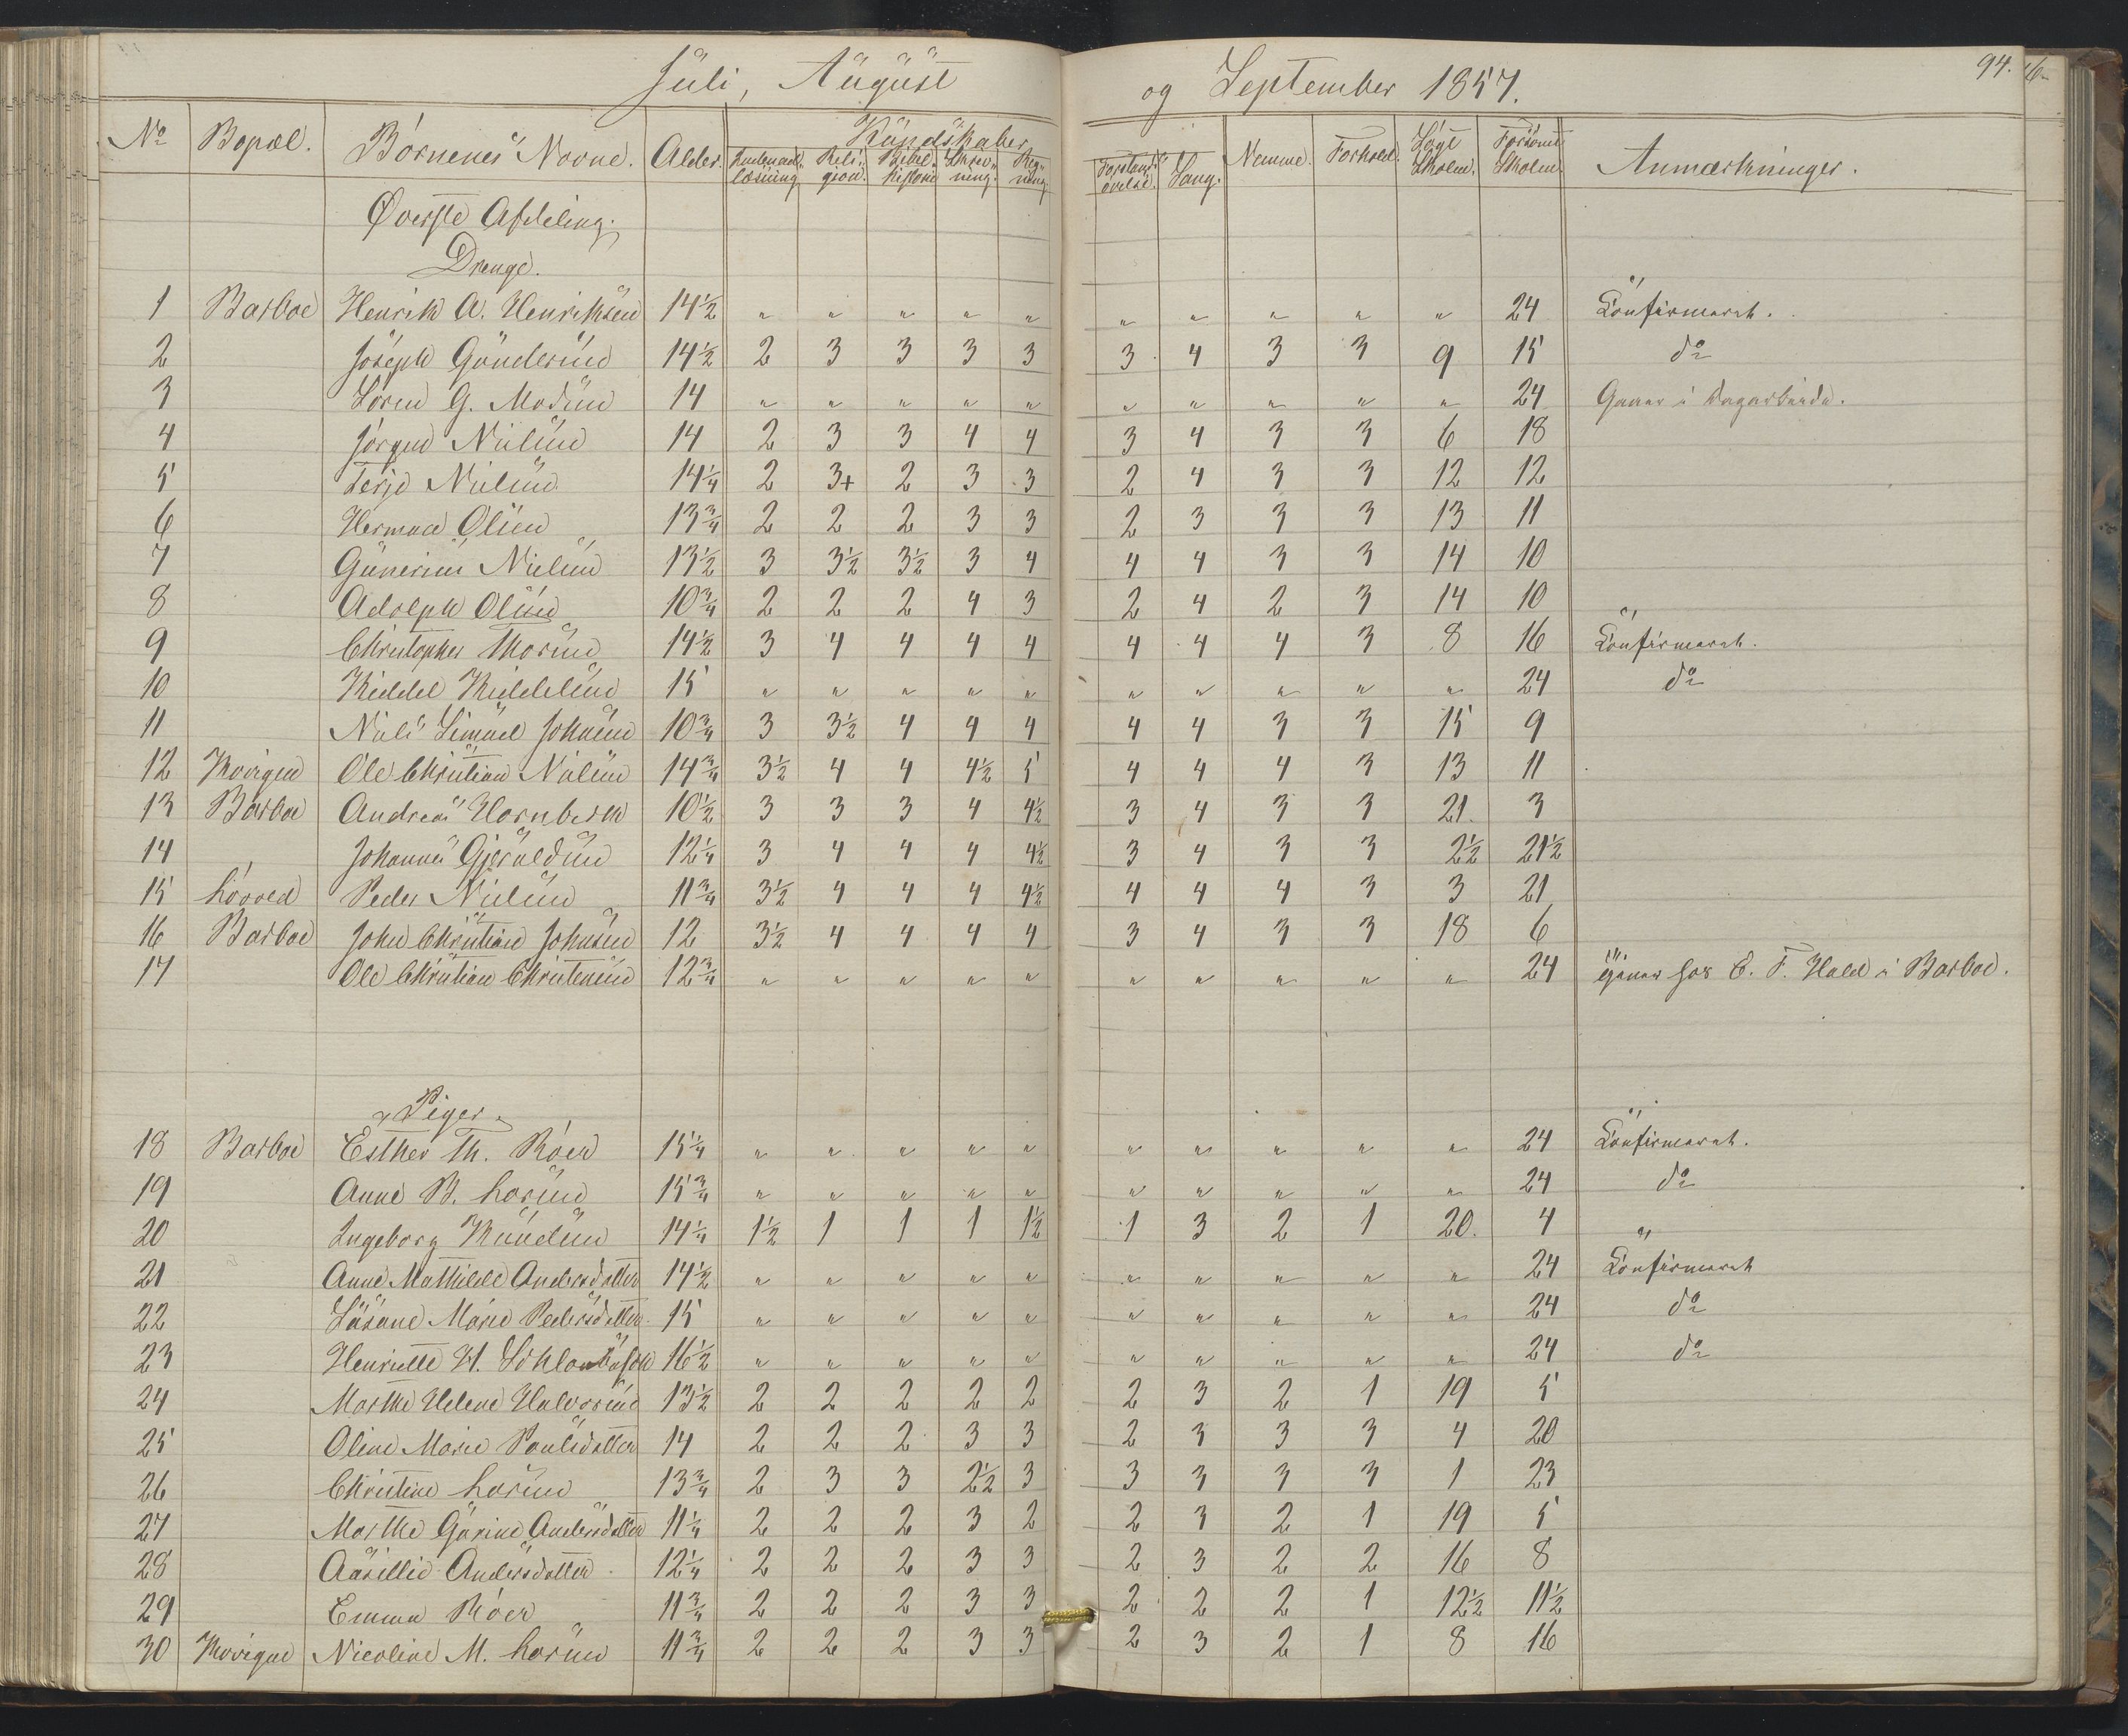 Juli, August og September 1857. 94.
No Bopæl. Børnenes Navne. Alder. Kundskaber Nemme. Forhold. Søgt Skolen. Forsömt Skolen. Anmærkninger.
Indenadlæsning Religion. Bibelhistorie Skrivning. Regning Forstandsøvelse. Sang.
Øverste Afdeling.
Drenge.
1 Barboe Henrik A. Henriksen 14½ " " " " " " " " " " 24 Confirmeret.
2 Joseph Gundersen 14½ 2 3 3 3 3 3 4 3 3 9 15 do
3 Søren G. Madsen 14 " " " " " " " " " " 24
4 Jørgen Nielsen 14 2 3 3 4 4 3 4 3 3 6 18
5 Terje Nielsen 14¼ 2 3+ 2 3 3 2 4 3 3 12 12
6 Herman Olsen 13¾ 2 2 2 3 3 2 3 3 3 13 11
7 Gunerius Nielsen 13½ 3 3½ 3½ 3 4 4 4 3 3 14 10
8 Adolph Olsen 10¾ 2 2 2 4 3 2 4 2 3 14 10
9 Christopher Thorsen 14½ 3 4 4 4 4 4 4 4 3 8 16 Confirmeret.
10 Kieddel Kieddelsen 15 " " " " " " " " " " 24 do
11 Niels Simuel Johnsen 10¾ 3 3½ 4 4 4 4 4 3 3 15 9
12 Movigen Ole Christian Nielsen 14¾ 3½ 4 4 4½ 5 4 4 4 3 13 11
13 Barboe Andreas Hornbeck 10½ 3 3 3 4 4½ 3 4 3 3 21. 3
14 Johannes Gjeruldsen 12¼ 3 4 4 4 4½ 3 4 3 3 2½ 21½
15 Lörved Peder Nielsen 11¾ 3½ 4 4 4 4½ 4 4 4 3 3 21
16 Barboe John Christian Johnsen 12 3½ 4 4 4 4 3 4 3 3 18 6
17 Ole Christian Christensen 12¾ " " " " " " " " " " 24 hos C. F. Hald i Barboe.
Piger.
18 Barboe Esther Th. Röer 15¼ " " " " " " " " " " 24 Confirmeret.
19 Anne B. Larsen 15¾ " " " " " " " " " " 24 do
20 Ingeborg Knudsen 14¼ 1½ 1 1 1 1½ 1 3 2 1 20. 4 "
21 Anne Mathilde Andersdatter 14½ " " " " " " " " " " 24 Confirmeret
22 Susane Marie Pedersdatter 15 " " " " " " " " " " 24 do
23 Henriette H. 16½ " " " " " " " " " " 24 do
24 Marthe Helene Halvorsen 13½ 2 2 2 2 2 2 3 2 1 19 5
25 Oline Marie Poulsdatter 14 2 2 2 3 3 2 3 3 3 4 20
26 Christine Larsen 13¾ 2 3 3 2½ 3 3 3 3 3 1 23
27 Marthe Gurine Andersdatter 11¼ 2 2 2 3 2 2 3 2 1 19 5
28 Aasillie Andersdatter 12¼ 2 2 2 3 3 2 3 2 2 16 8
29 Emma Röer 11¾ 2 2 2 3 3 2 2 2 1 12½ 11½
30 Movigen Nicoline M. Larsen 11¾ 2 2 2 3 3 2 3 2 1 8 16